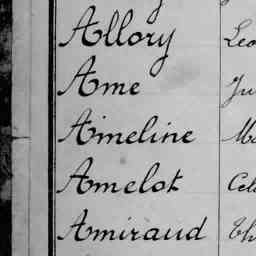 Allory Leo
Ame Ju
Ameline Ma
Amelot Cél
Amiraud Th